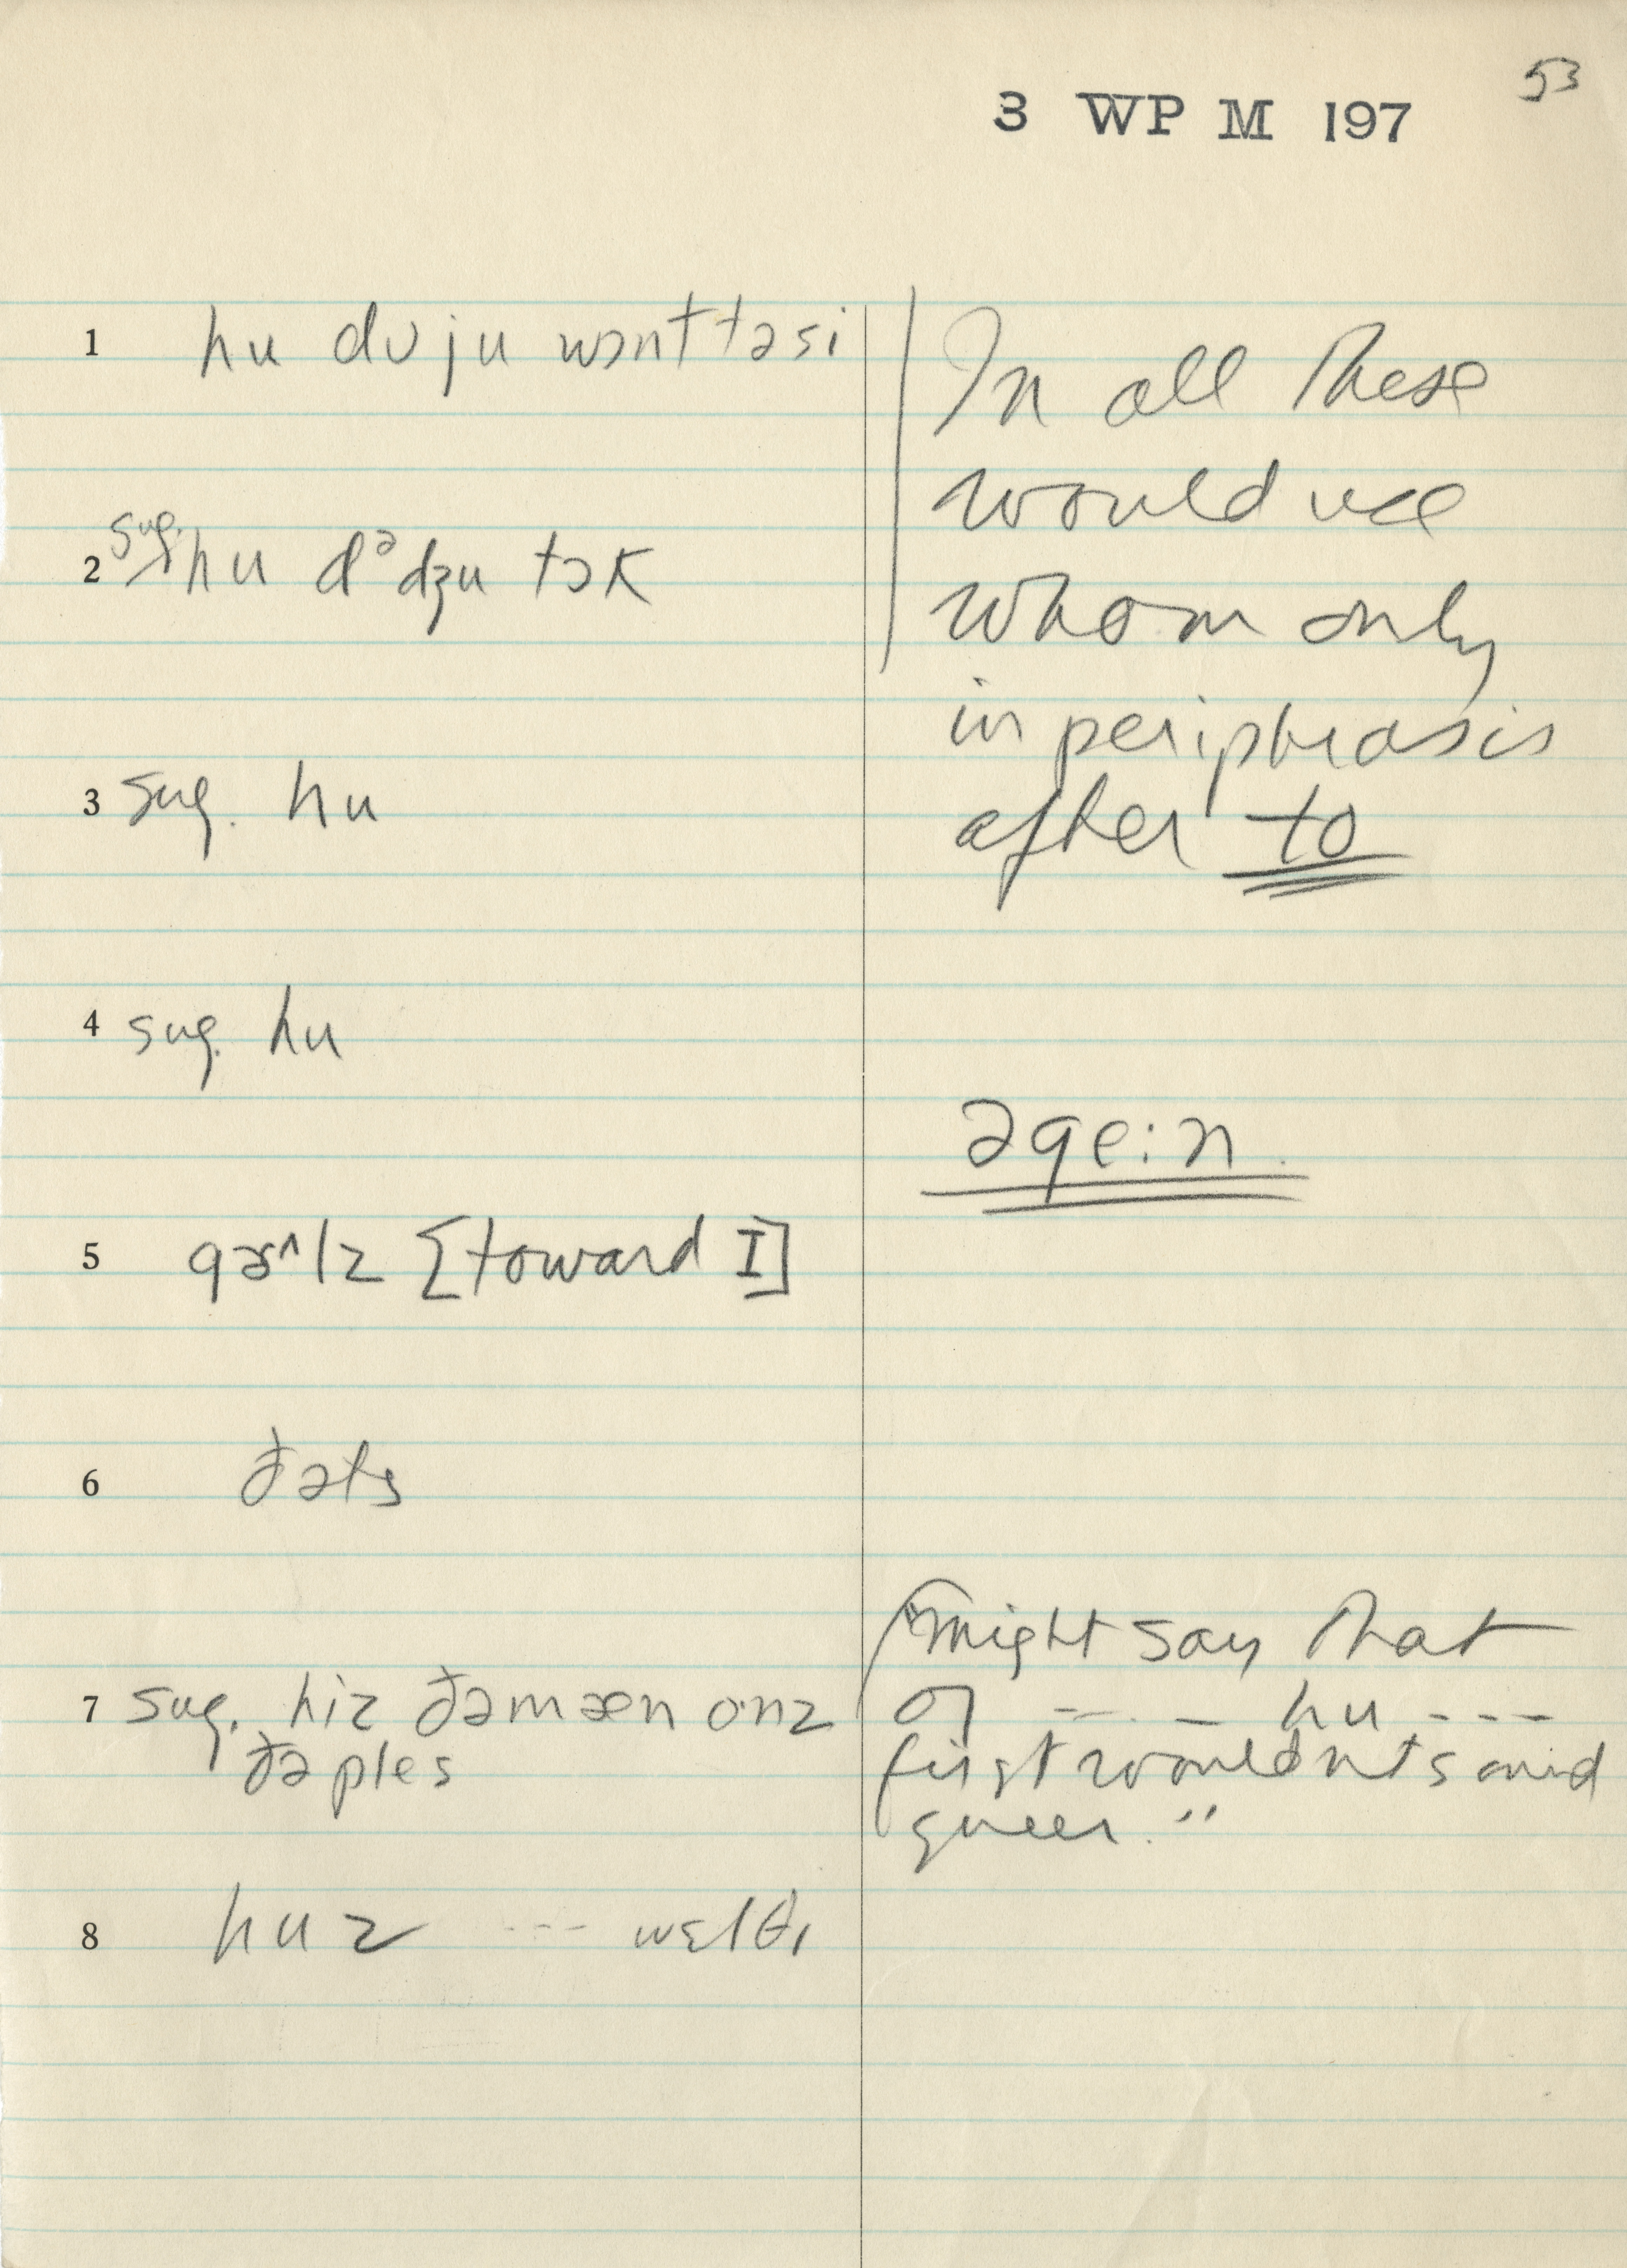 53
3 WP M 197
1 hu dʊ ju wɔnt tə si
2 sug. hu dᵊdʒu tɔk
3 sug. hu
4 sug. hu
5 gɚ^lz [toward I]
6 ðəts
7 sug. hiz ðə mæn onz
ðə ples
8 huz --- wɛlθɪ
In all these
would use
whom only
in periphrasis
after to
əge:n
"might say that
of --- hu ---
first wouldn't sound
queer."